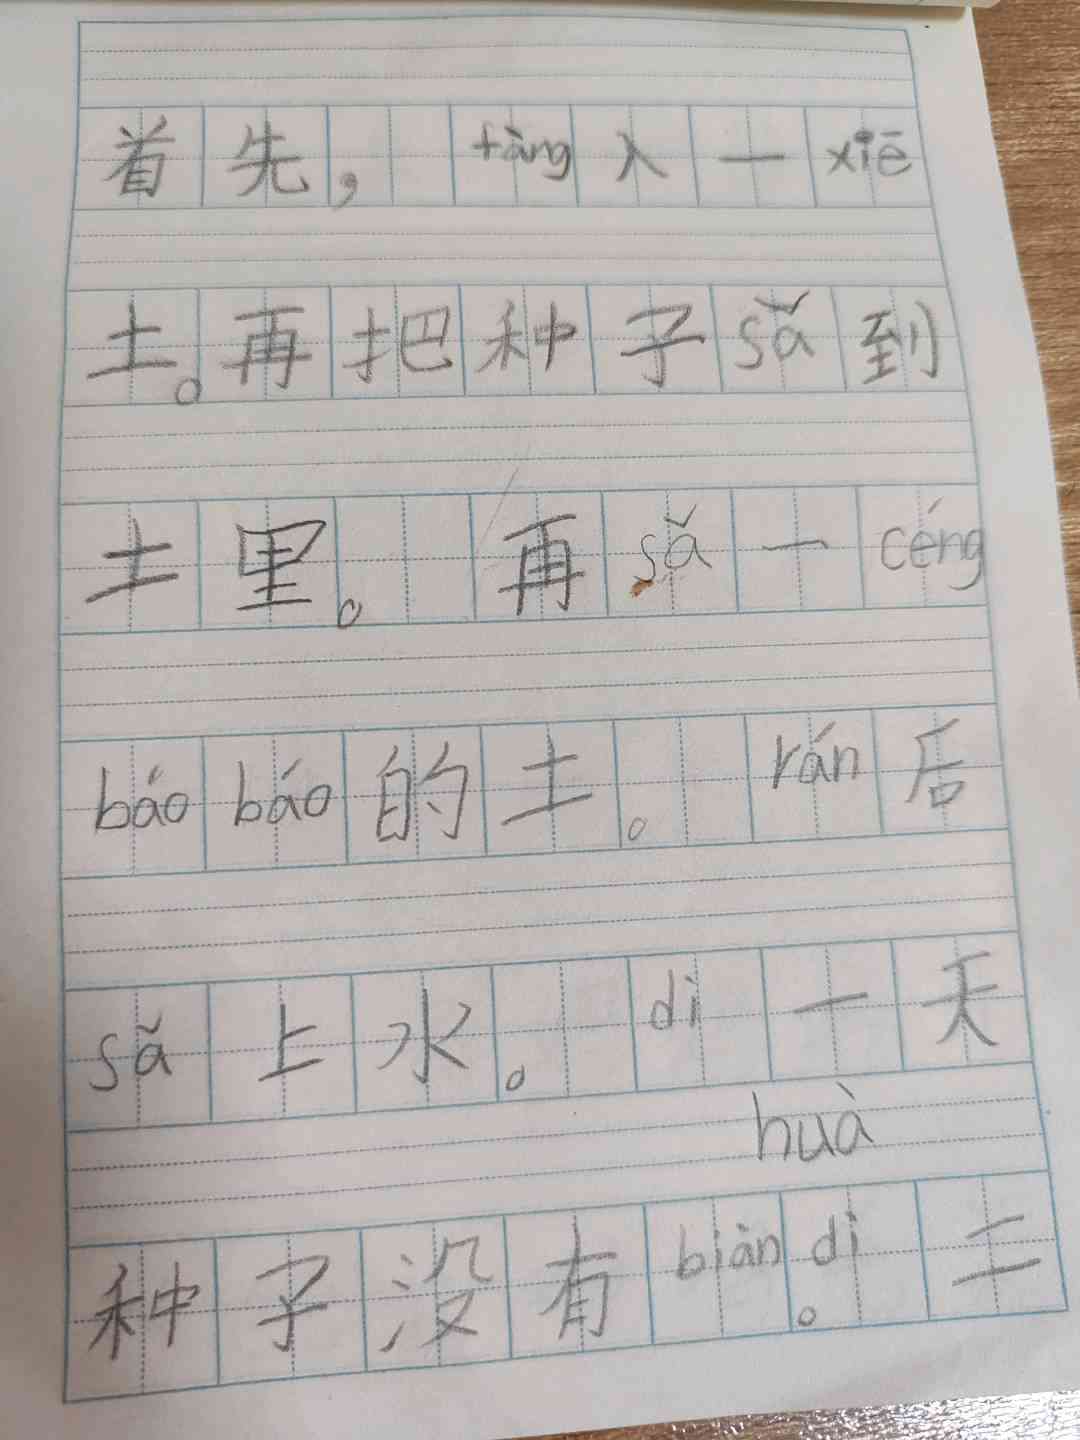 首先，tàng入一xiē
土。再把种子sǎ到
土里。再sǎ一céng
báo báo的土。rán后
sǎ上水。dì一天
huà
种子没有biàn。dì二